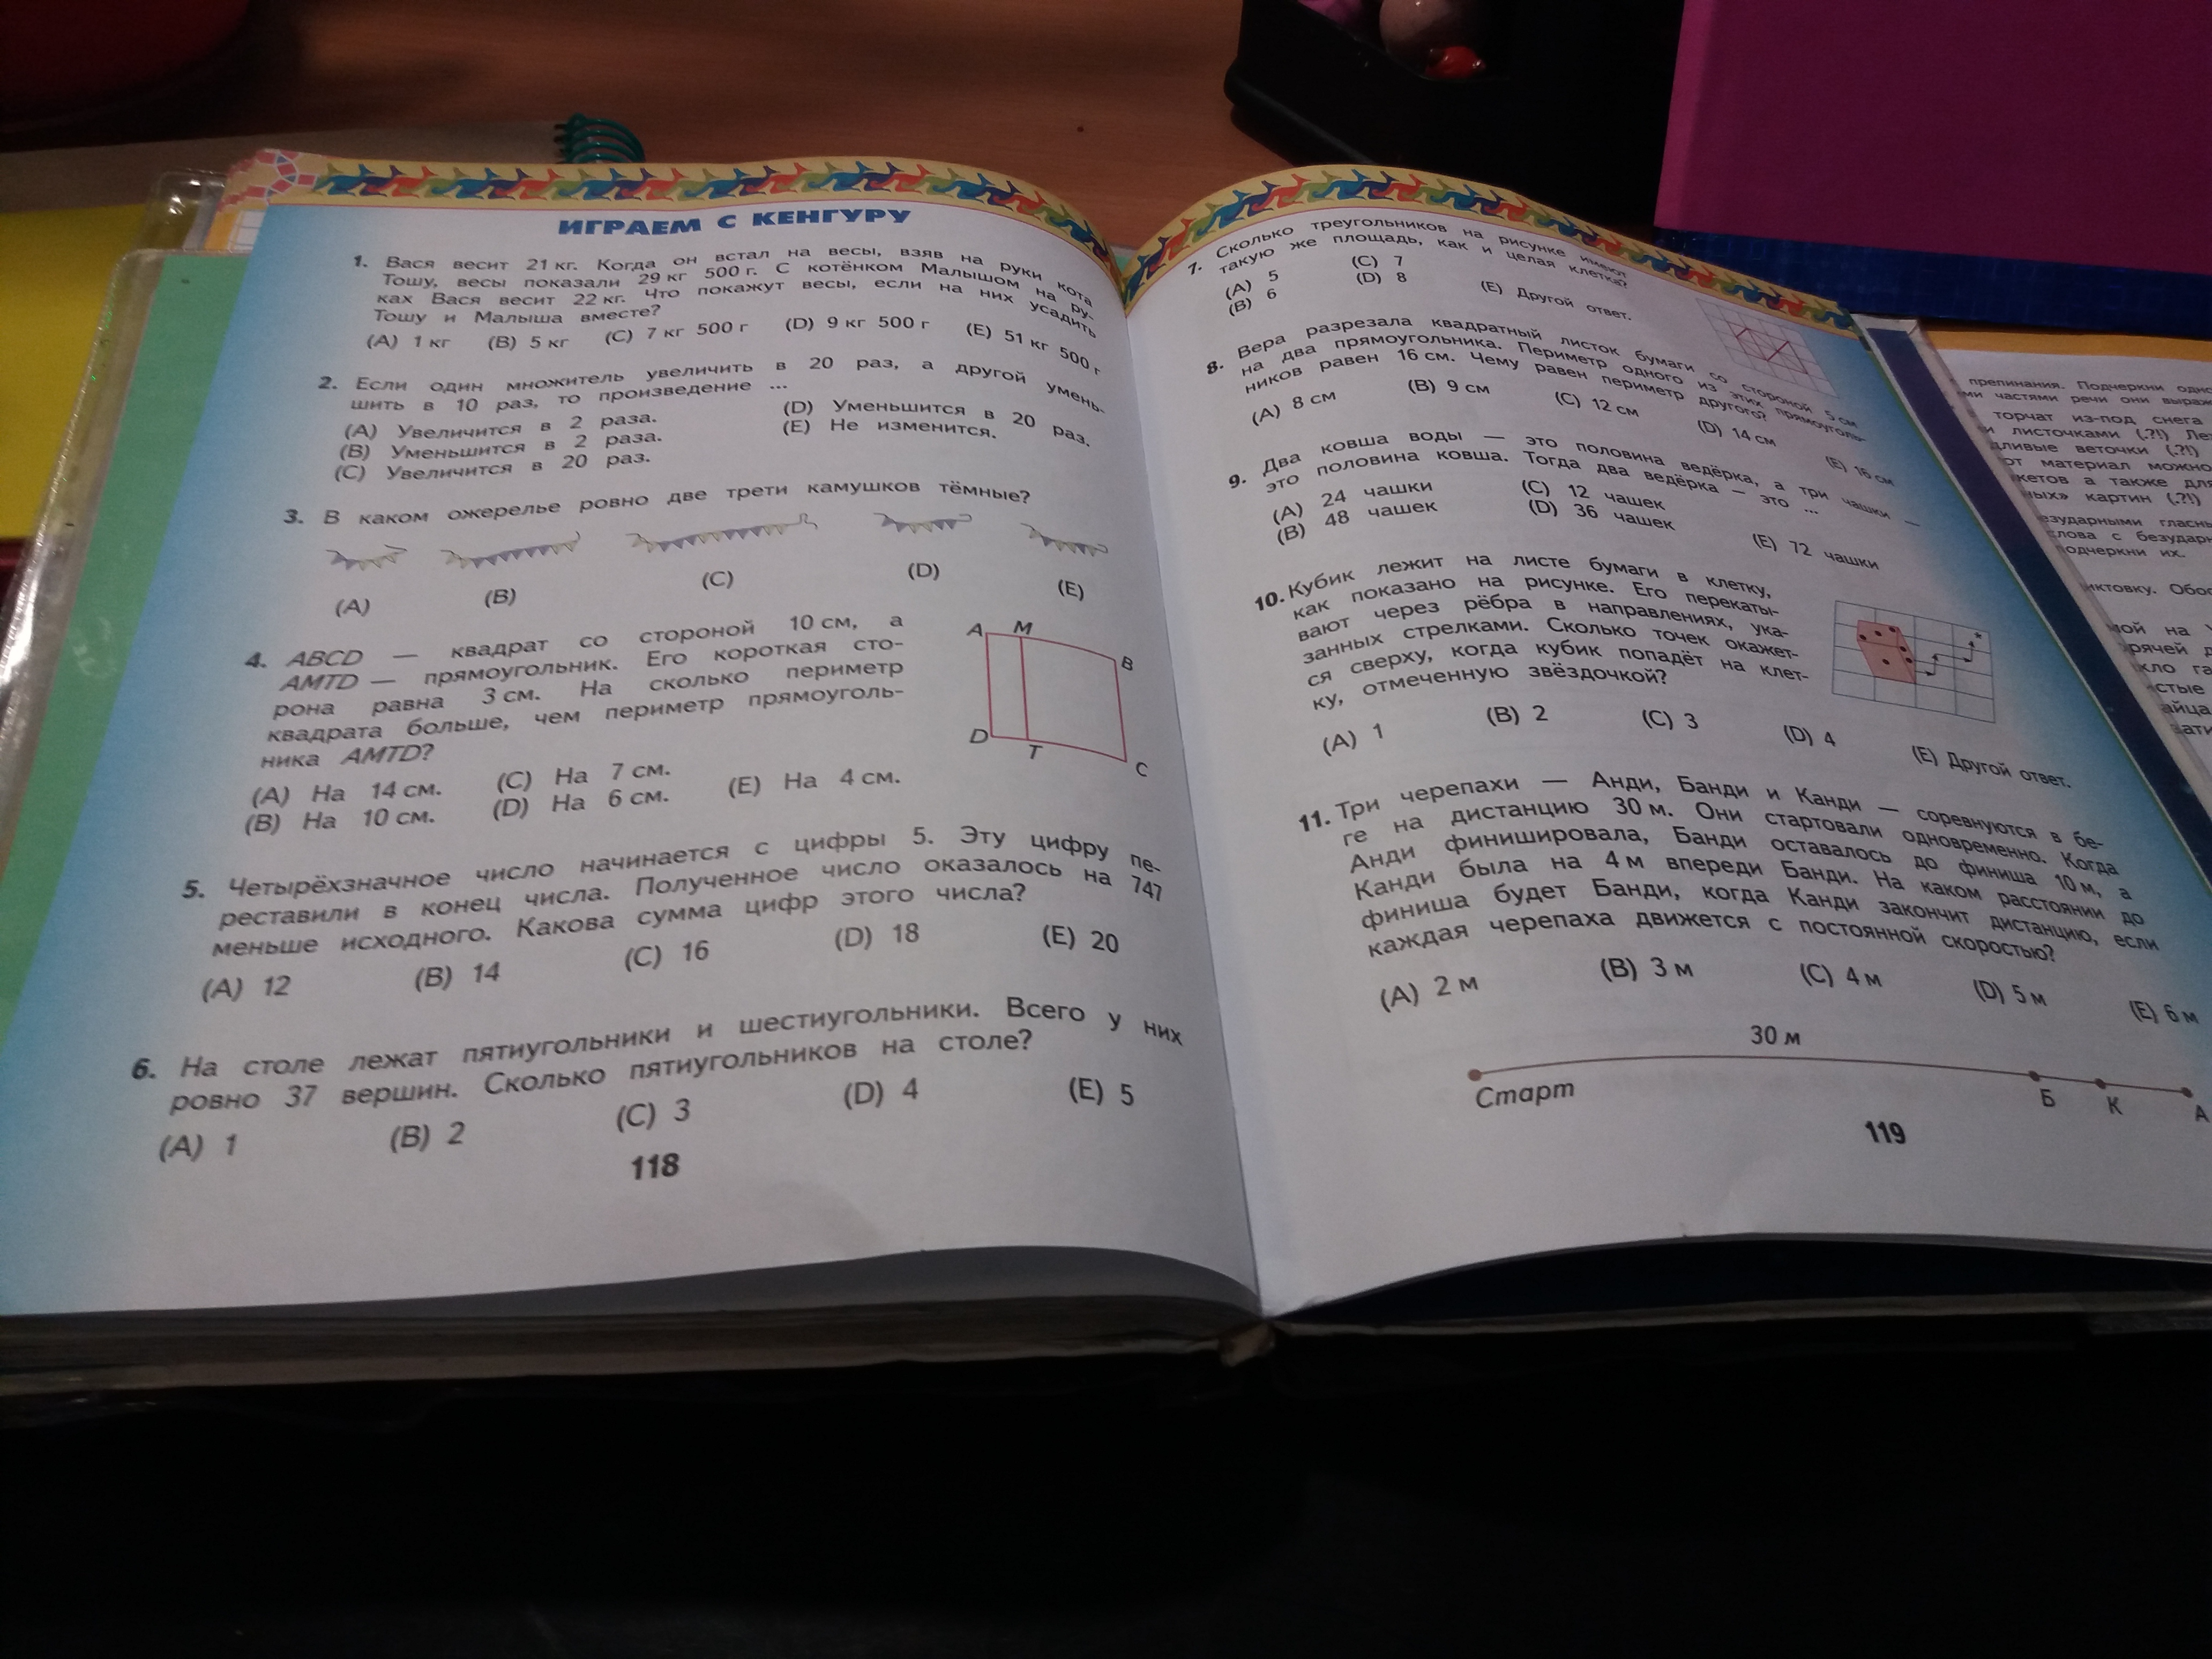 ИГРАЕМ С КЕНГУРУ
1. Вася весит 21 кг. Когда он встал на весы, взяв на руки кота
Тошу, весы показали 29 кг 500 г. С котёнком Малышом на ру-
ках Вася весит 22 кг. Что покажут весы, если на них усадить
Тошу и Малыша вместе?
(A) 1 кг (B) 5 кг (C) 7 кг 500 г (D) 9 кг 500 г (E) 51 кг 500 г
2. Если один множитель увеличить в 20 раз, а другой умень-
шить в 10 раз, то произведение ...
(A) Увеличится в 2 раза. (D) Уменьшится в 20 раз.
(B) Уменьшится в 2 раза. (E) Не изменится.
(C) Увеличится в 20 раз.
3. В каком ожерелье ровно две трети камушков тёмные?
(A) (B) (C) (D) (E)
4. ABCD — квадрат со стороной 10 см, а
AMTD — прямоугольник. Его короткая сто-
рона равна 3 см. На сколько периметр
квадрата больше, чем периметр прямоуголь-
ника AMTD?
A M B
D T C
(A) На 14 см. (C) На 7 см. (E) На 4 см.
(B) На 10 см. (D) На 6 см.
5. Четырёхзначное число начинается с цифры 5. Эту цифру пе-
реставили в конец числа. Полученное число оказалось на 747
меньше исходного. Какова сумма цифр этого числа?
(A) 12 (B) 14 (C) 16 (D) 18 (E) 20
6. На столе лежат пятиугольники и шестиугольники. Всего у них
ровно 37 вершин. Сколько пятиугольников на столе?
(A) 1 (B) 2 (C) 3 (D) 4 (E) 5
118
7. Сколько треугольников на рисунке имеют
такую же площадь, как и целая клетка?
(A) 5 (C) 7 (E) Другой ответ.
(B) 6 (D) 8
8. Вера разрезала квадратный листок бумаги со стороной 5 см
на два прямоугольника. Периметр одного из этих прямоуголь-
ников равен 16 см. Чему равен периметр другого?
(A) 8 см (B) 9 см (C) 12 см (D) 14 см (E) 16 см
9. Два ковша воды — это половина ведёрка, а три чашки —
это половина ковша. Тогда два ведёрка — это ...
(A) 24 чашки (C) 12 чашек (E) 72 чашки
(B) 48 чашек (D) 36 чашек
10. Кубик лежит на листе бумаги в клетку,
как показано на рисунке. Его перекаты-
вают через рёбра в направлениях, ука-
занных стрелками. Сколько точек окажет-
ся сверху, когда кубик попадёт на клет-
ку, отмеченную звёздочкой?
(A) 1 (B) 2 (C) 3 (D) 4 (E) Другой ответ.
11. Три черепахи — Анди, Банди и Канди — соревнуются в бе-
ге на дистанцию 30 м. Они стартовали одновременно. Когда
Анди финишировала, Банди оставалось до финиша 10 м, а
Канди была на 4 м впереди Банди. На каком расстоянии до
финиша будет Банди, когда Канди закончит дистанцию, если
каждая черепаха движется с постоянной скоростью?
(A) 2 м (B) 3 м (C) 4 м (D) 5 м (E) 6 м
30 м
Старт Б К А
119
препинания. Подчеркни
частями речи они
торчат из-под снега
листочками (.?!)
веточки (.?!)
материал можно
а также для
картин (.?!)
слова с
подчеркни их.